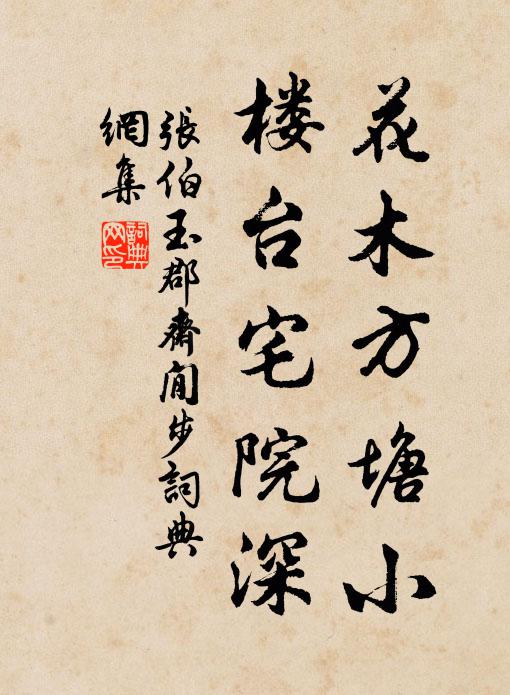 花木方塘小
楼台宅院深
張伯玉郡齋閒步詞典
網集
詞典
网印